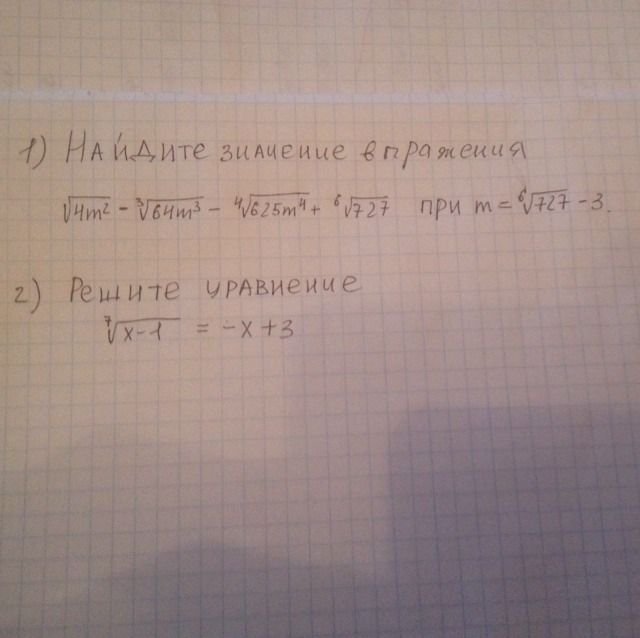 1) Найдите значение выражения
√4m² - ³√64m³ - ⁴√625m⁴ + ⁶√727 при m = ⁶√727 - 3.
2) Решите уравнение
⁷√x-1 = -x+3